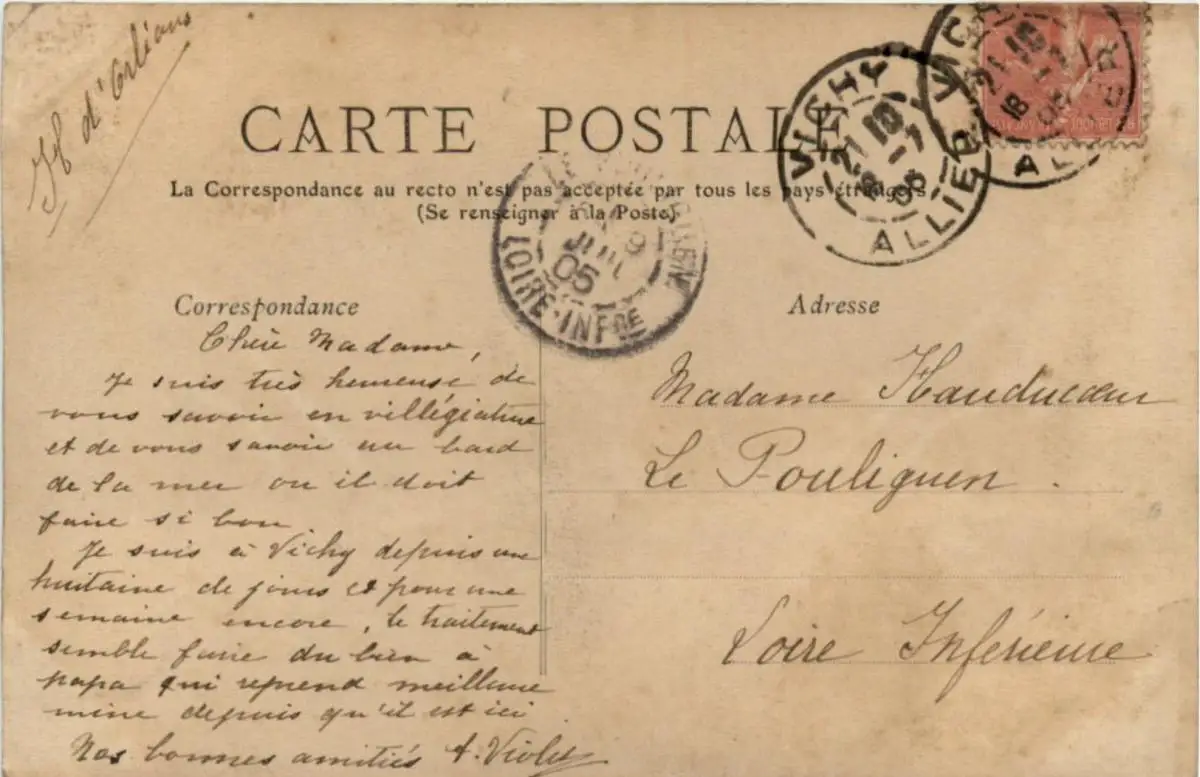 Hl d'Orléans
CARTE POSTALE
La Correspondance au recto n'est pas acceptée par tous les pays étrangers
(Se renseigner à la Poste)
VICHY
21 10
18 -7
05
ALLIER
VIC
21 10
18
05
ALLIER
LE POULIGUEN
9
JUIL
05
LOIRE-INFRE
Correspondance
Chère Madame,
Je suis très heureuse de
vous savoir en villégiature
et de vous savoir au bord
de la mer ou il doit
faire si bon
Je suis à Vichy depuis une
huitaine de jours et pour une
semaine encore, le traitement
semble faire du bien à
papa qui reprend meilleure
mine depuis qu'il est ici
Nos bonnes amitiés A. Violet
Adresse
Madame Hauducœur
Le Pouliguen.
Loire Inférieure